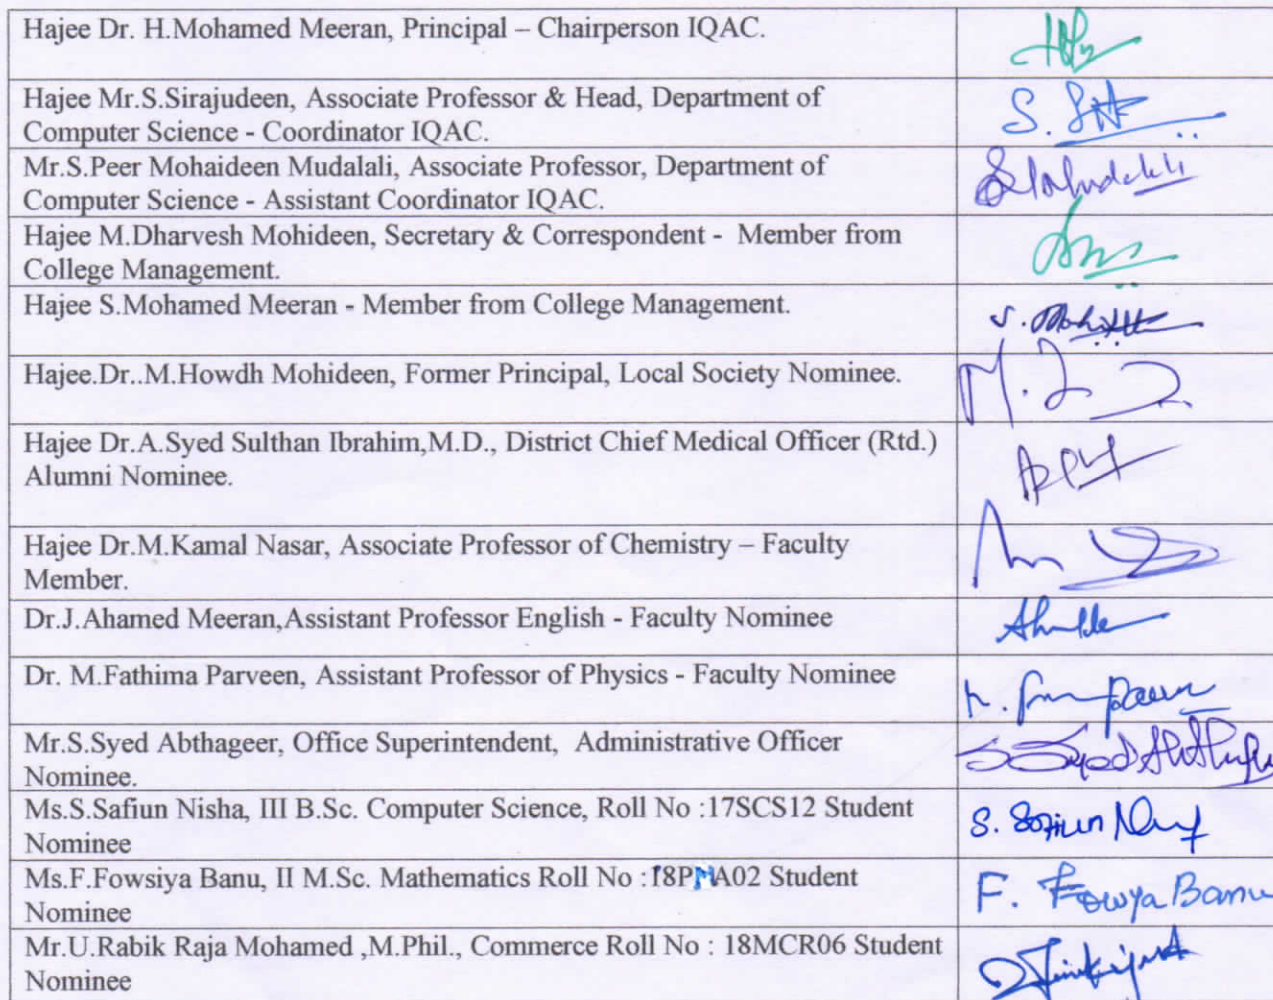 Hajee Dr. H.Mohamed Meeran, Principal – Chairperson IQAC.
Hajee Mr.S.Sirajudeen, Associate Professor & Head, Department of
S.
Computer Science - Coordinator IQAC.
Mr.S.Peer Mohaideen Mudalali, Associate Professor, Department of
Computer Science - Assistant Coordinator IQAC.
Hajee M.Dharvesh Mohideen, Secretary & Correspondent - Member from
College Management.
Hajee S.Mohamed Meeran - Member from College Management.
Hajee.Dr..M.Howdh Mohideen, Former Principal, Local Society Nominee.
Hajee Dr.A.Syed Sulthan Ibrahim,M.D., District Chief Medical Officer (Rtd.)
Alumni Nominee.
Hajee Dr.M.Kamal Nasar, Associate Professor of Chemistry – Faculty
Member.
Dr.J.Ahamed Meeran,Assistant Professor English - Faculty Nominee
Dr. M.Fathima Parveen, Assistant Professor of Physics - Faculty Nominee
Mr.S.Syed Abthageer, Office Superintendent, Administrative Officer
Nominee.
Ms.S.Safiun Nisha, III B.Sc. Computer Science, Roll No :17SCS12 Student
Nominee
S. Safiun
Ms.F.Fowsiya Banu, II M.Sc. Mathematics Roll No :18PMA02 Student
Nominee
F. Fowya Banu
Mr.U.Rabik Raja Mohamed ,M.Phil., Commerce Roll No : 18MCR06 Student
Nominee